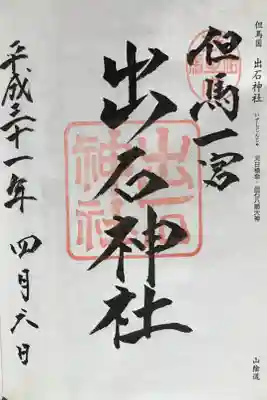 但馬国 出石神社
いずしじんじゃ
天日槍命・出石八前大神
山陰道
但馬一宮
出石神社
出石神社
平成三十一年 四月六日